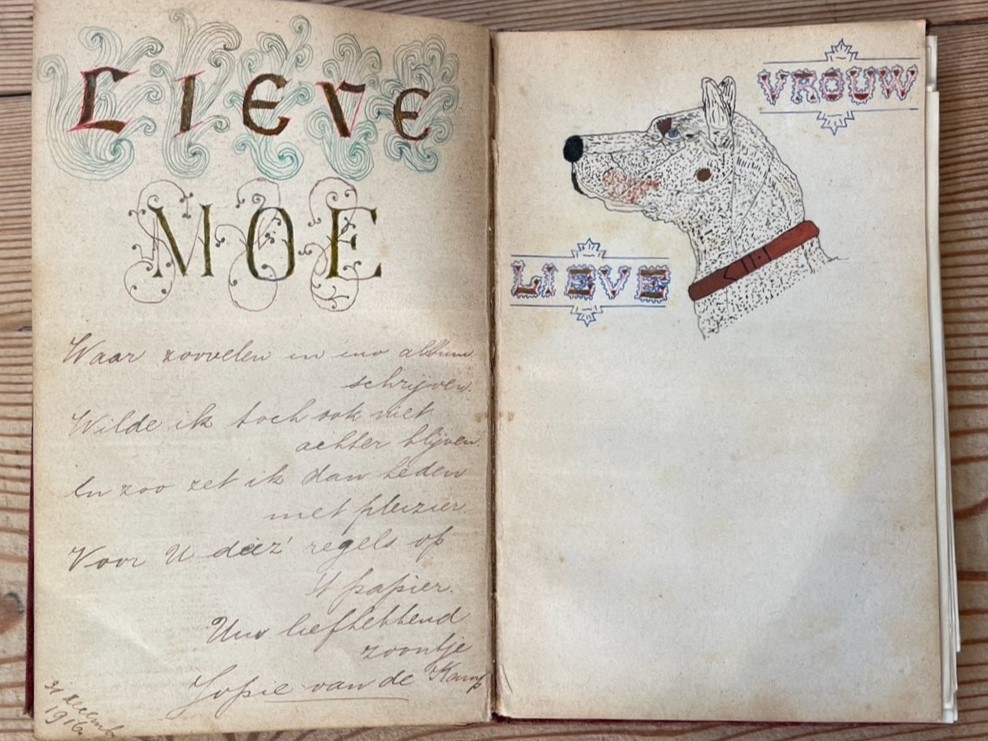 LIEVE
MOE
Waar zoovelen in uw album
schrijven.
Wilde ik toch ook niet
achter blijven
En zoo zet ik dan heden
met pleizier.
Voor U deez' regels op
't papier.
Uw liefhebbend
zoontje
Jopie van de Kamp
31 Decemb
1916
VROUW
LIEVE